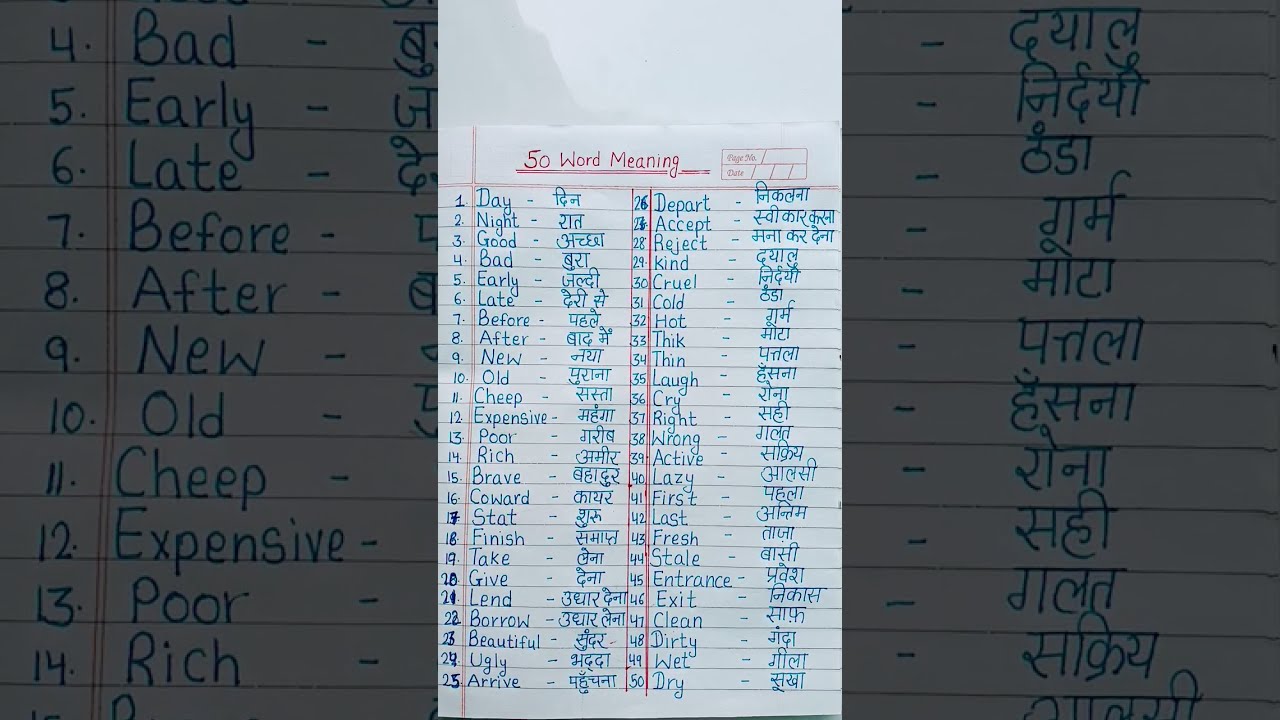 50 Word Meaning
Page No.
Date
1. Day - दिन
2. Night - रात
3. Good - अच्छा
4. Bad - बुरा
5. Early - जल्दी
6. Late - देरी से
7. Before - पहले
8. After - बाद में
9. New - नया
10. Old - पुराना
11. Cheep - सस्ता
12. Expensive - महंगा
13. Poor - गरीब
14. Rich - अमीर
15. Brave - बहादुर
16. Coward - कायर
17. Stat - शुरू
18. Finish - समाप्त
19. Take - लेना
20. Give - देना
21. Lend - उधार देना
22. Borrow - उधार लेना
23. Beautiful - सुंदर
24. Ugly - भद्दा
25. Arrive - पहुँचना
26 Depart - निकलना
27. Accept - स्वीकार करना
28. Reject - मना कर देना
29. Kind - दयालु
30 Cruel - निर्दयी
31 Cold - ठंडा
32 Hot - गर्म
33 Thik - मोटा
34 Thin - पत्तला
35 Laugh - हँसना
36 Cry - रोना
37 Right - सही
38 Wrong - गलत
39 Active - सक्रिय
40 Lazy - आलसी
41 First - पहला
42 Last - अन्तिम
43 Fresh - ताज़ा
44 Stale - बासी
45 Entrance - प्रवेश
46 Exit - निकास
47 Clean - साफ़
48 Dirty - गंदा
49 Wet - गीला
50 Dry - सूखा
4. Bad -
5. Early -
6. Late -
7. Before -
8. After -
9. New -
10. Old -
11. Cheep -
12. Expensive -
13. Poor -
14. Rich -
- दयालु
- निर्दयी
- ठंडा
- गर्म
- मोटा
- पत्तला
- हँसना
- रोना
- सही
- गलत
- सक्रिय